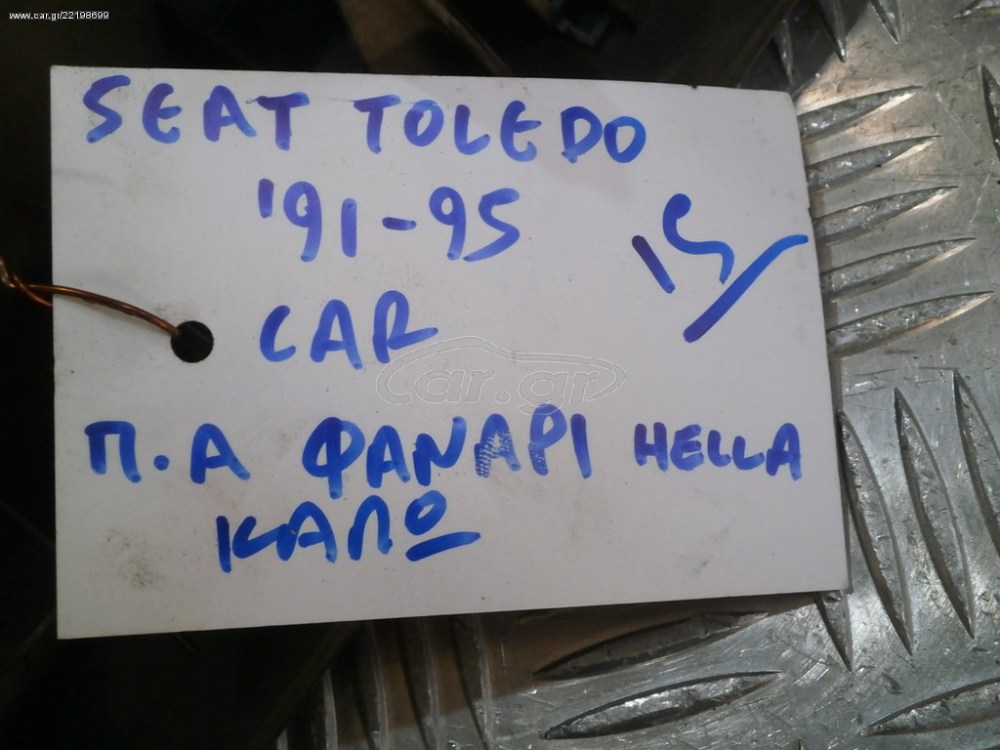 www.car.gr/22198699
SEAT TOLEDO
'91-95
CAR
car.gr
Π.Α ΦΑΝΑΡΙ HELLA
ΚΑΛΟ